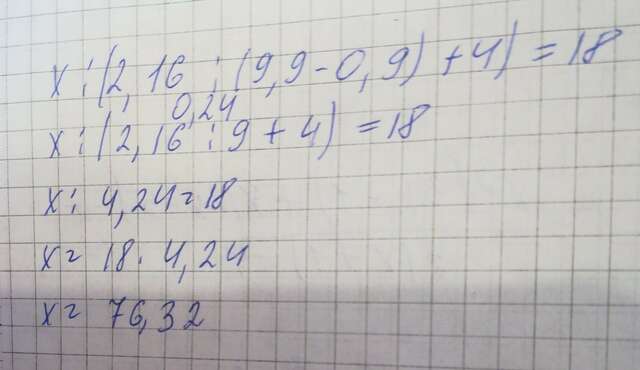 x : (2,16 : (9,9-0,9) + 4) = 18
0,24
x : (2,16 : 9 + 4) = 18
x : 4,24 = 18
x = 18 · 4,24
x = 76,32